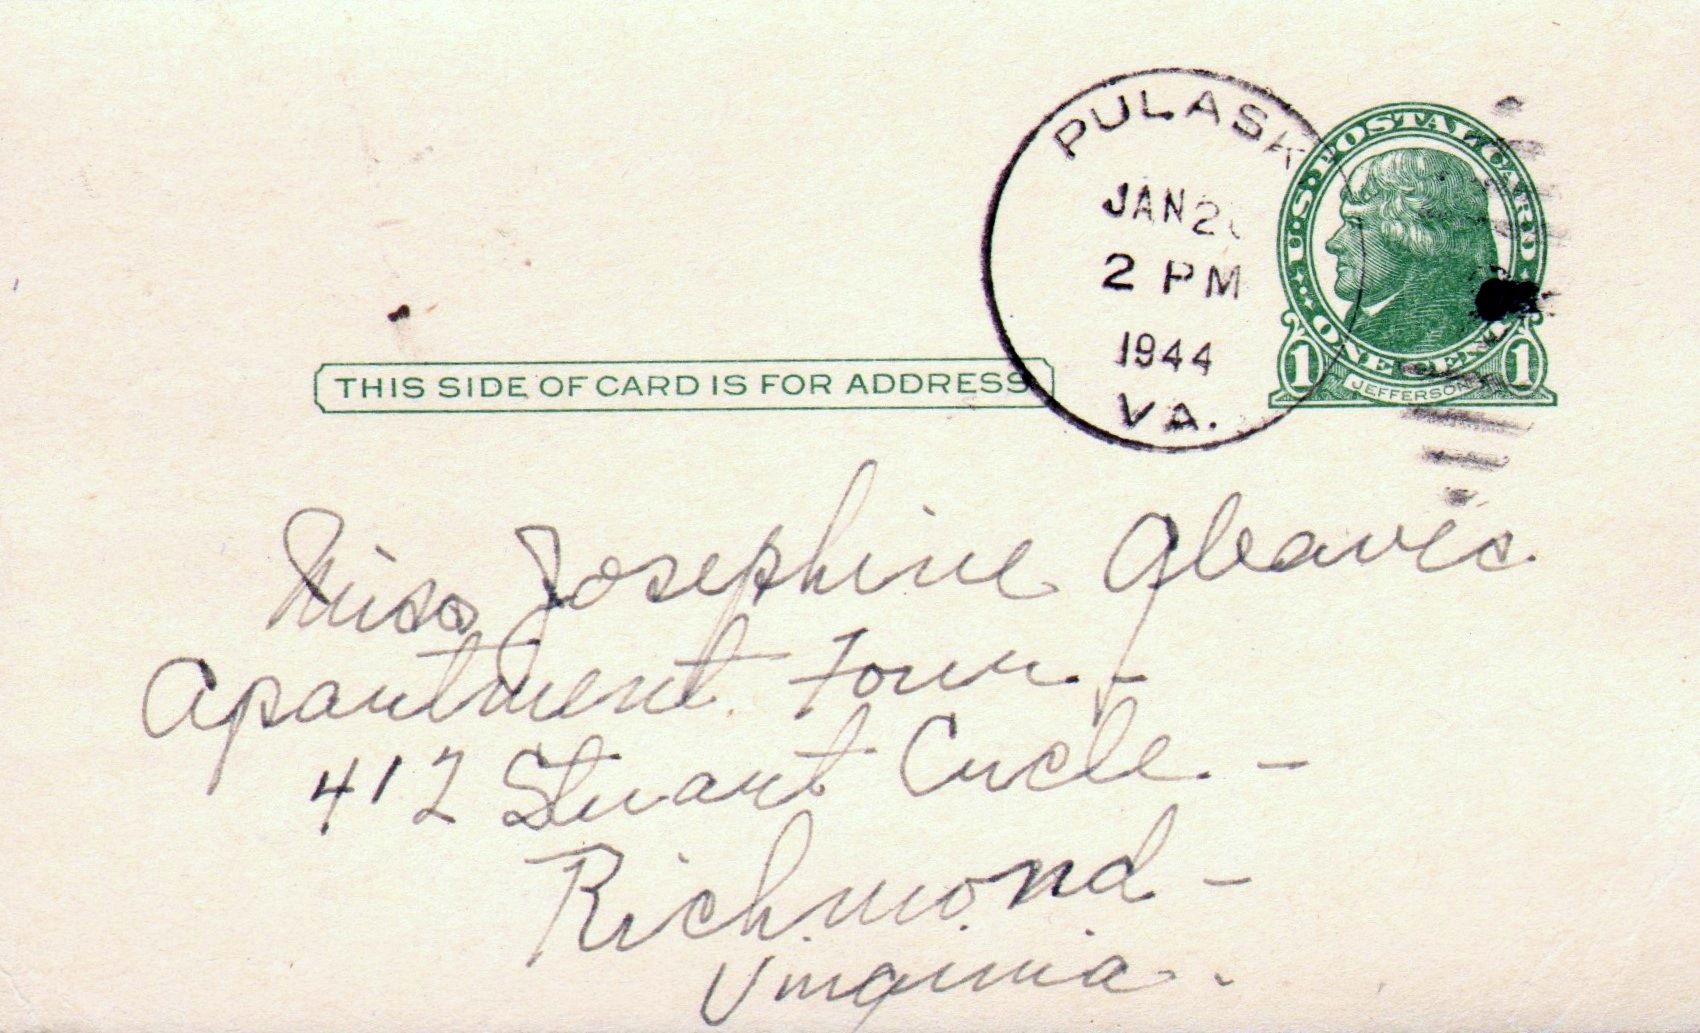 PULASK
JAN 2
2 PM
1944
VA.
U.S. POSTAL CARD
ONE CENT
1 1
JEFFERSON
THIS SIDE OF CARD IS FOR ADDRESS
Miss Josephine Gleaves
Apartment Four. -
412 Stuart Circle. -
Richmond -
Virginia.